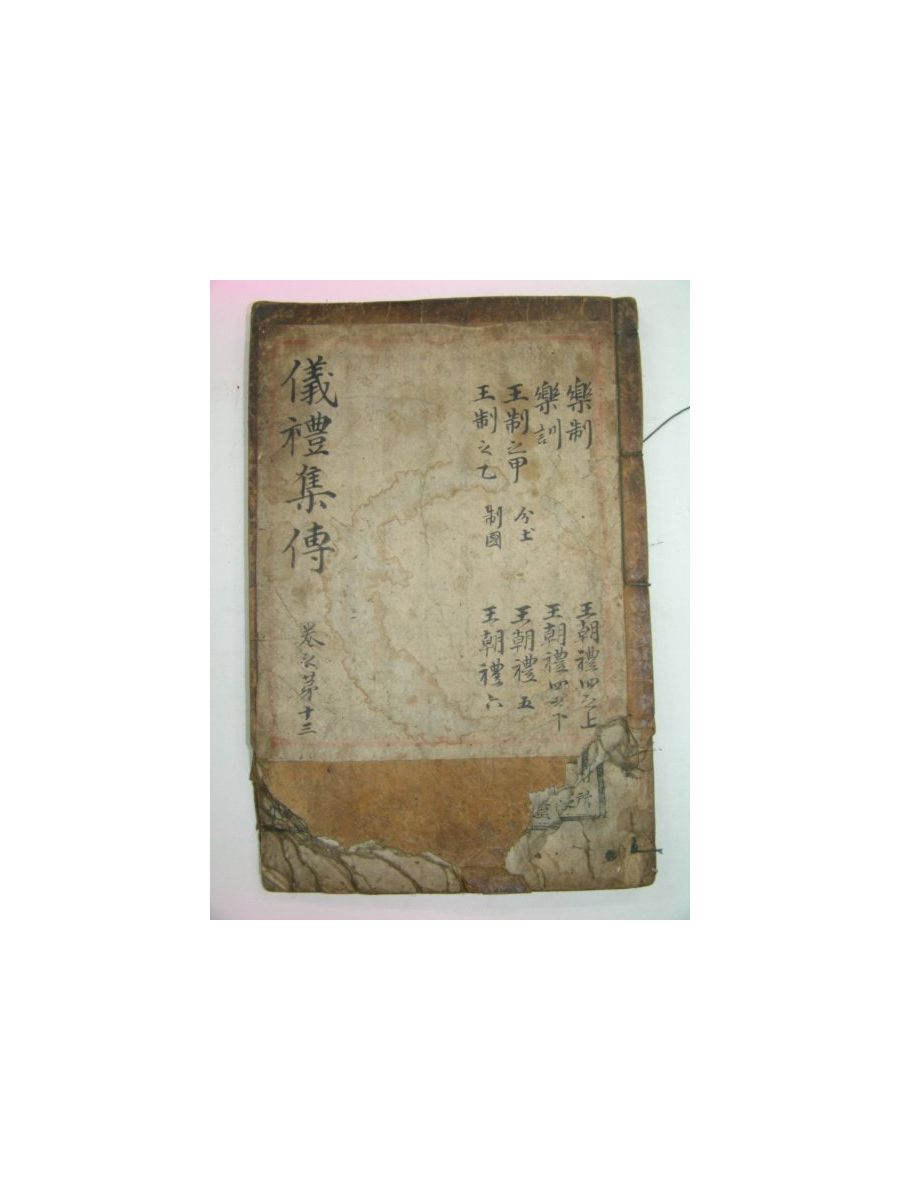 樂制 王朝禮四之上
樂訓 王朝禮四之下
王制之甲 分土 王朝禮五
王制之乙 制國 王朝禮六
儀禮集傳 卷之第十三